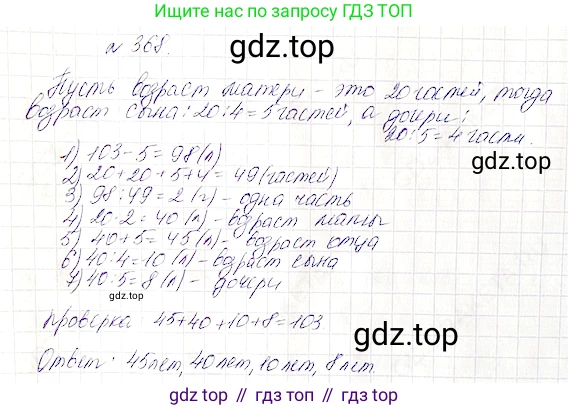 Ищите нас по запросу ГДЗ ТОП
№ 368.
gdz.top
Пусть возраст матери - это 20 частей, тогда
возраст сына: 20:4=5 частей, а дочери:
20:5=4 части.
gdz.top
1) 103-5=98(л)
2) 20+20+5+4=49(частей)
3) 98:49=2(г) - одна часть
4) 20·2=40(л) - возраст мамы
5) 40+5=45(л) - возраст отца
6) 40:4=10(л) - возраст сына
7) 40:5=8(л) - дочери
Проверка: 45+40+10+8=103.
gdz.top
Ответ: 45лет, 40лет, 10лет, 8лет.
gdz.top // гдз.топ // gdz.top